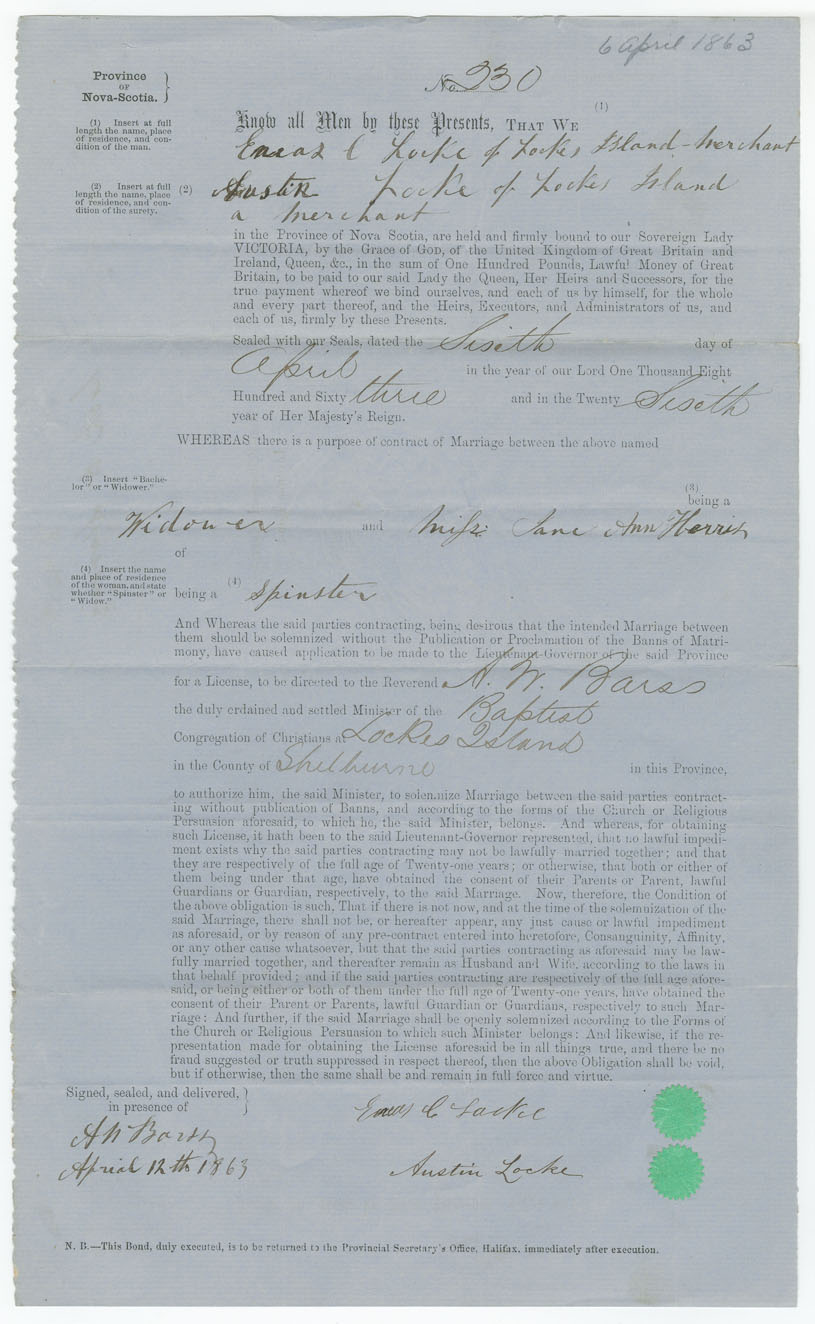 6 April 1863
Province
OF
Nova-Scotia.
No. 230
(1)
(1) Insert at full
length the name, place
of residence, and con-
dition of the man.
Know all Men by these Presents, THAT WE
Eneas C Locke of Lockes Island - Merchant
(2) Insert at full
length the name, place
of residence, and con-
dition of the surety.
(2) Austin Locke of Lockes Island
a Merchant
in the Province of Nova Scotia, are held and firmly bound to our Sovereign Lady
VICTORIA, by the Grace of GOD, of the United Kingdom of Great Britain and
Ireland, Queen, &c., in the sum of One Hundred Pounds, Lawful Money of Great
Britain, to be paid to our said Lady the Queen, Her Heirs and Successors, for the
true payment whereof we bind ourselves, and each of us by himself, for the whole
and every part thereof, and the Heirs, Executors, and Administrators of us, and
each of us, firmly by these Presents.
Sealed with our Seals, dated the Sixeth day of
April in the year of our Lord One Thousand Eight
Hundred and Sixty three and in the Twenty Sixeth
year of Her Majesty's Reign.
WHEREAS there is a purpose of contract of Marriage between the above named
(3) Insert "Bache-
lor" or "Widower."
(3)
being a
Widower and Miss Jane Ann Herris
of
(4) Insert the name
and place of residence
of the woman, and state
whether "Spinster" or
"Widow."
being a (4) Spinster
And Whereas the said parties contracting, being desirous that the intended Marriage between
them should be solemnized without the Publication or Proclamation of the Banns of Matri-
mony, have caused application to be made to the Lieutenant-Governor of the said Province
for a License, to be directed to the Reverend A. W. Barss
the duly ordained and settled Minister of the Baptist
Congregation of Christians at Lockes Island
in the County of Shelburne in this Province,
to authorize him, the said Minister, to solemnize Marriage between the said parties contract-
ing without publication of Banns, and according to the forms of the Church or Religious
Persuasion aforesaid, to which he, the said Minister, belongs. And whereas, for obtaining
such License, it hath been to the said Lieutenant-Governor represented, that no lawful impedi-
ment exists why the said parties contracting may not be lawfully married together; and that
they are respectively of the full age of Twenty-one years; or otherwise, that both or either of
them being under that age, have obtained the consent of their Parents or Parent, lawful
Guardians or Guardian, respectively, to the said Marriage. Now, therefore, the Condition of
the above obligation is such, That if there is not now, and at the time of the solemnization of the
said Marriage, there shall not be, or hereafter appear, any just cause or lawful impediment
as aforesaid, or by reason of any pre-contract entered into heretofore, Consanguinity, Affinity,
or any other cause whatsoever, but that the said parties contracting as aforesaid may be law-
fully married together, and thereafter remain as Husband and Wife, according to the laws in
that behalf provided; and if the said parties contracting are respectively of the full age afore-
said, or being either or both of them under the full age of Twenty-one years, have obtained the
consent of their Parent or Parents, lawful Guardian or Guardians, respectively to such Mar-
riage: And further, if the said Marriage shall be openly solemnized according to the Forms of
the Church or Religious Persuasion to which such Minister belongs: And likewise, if the re-
presentation made for obtaining the License aforesaid be in all things true, and there be no
fraud suggested or truth suppressed in respect thereof, then the above Obligation shall be void,
but if otherwise, then the same shall be and remain in full force and virtue.
Signed, sealed, and delivered,
in presence of
Eneas C Locke
A W Barss
April 12th 1863
Austin Locke
N. B.—This Bond, duly executed, is to be returned to the Provincial Secretary's Office, Halifax, immediately after execution.